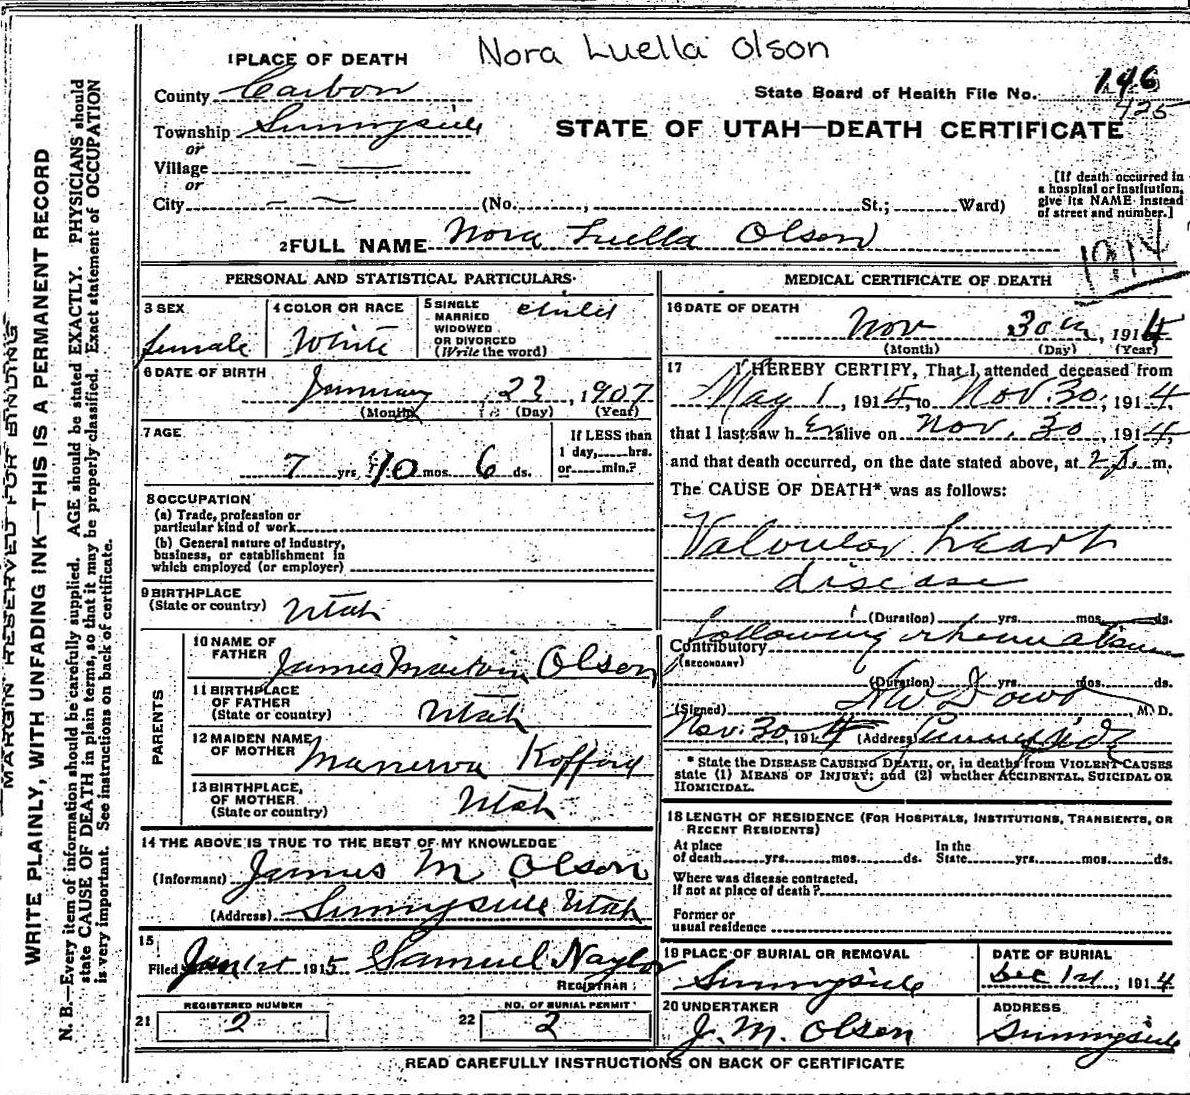 Nora Luella Olson
1 PLACE OF DEATH
County Carbon
State Board of Health File No. 146
425
Township Sunnyside
STATE OF UTAH—DEATH CERTIFICATE
or
Village — —
or
City — — (No. , St.; Ward)
[If death occurred in
a hospital or institution,
give its NAME instead
of street and number.]
2 FULL NAME Nora Luella Olson
1914
PERSONAL AND STATISTICAL PARTICULARS
3 SEX
female
4 COLOR OR RACE
White
5 SINGLE
MARRIED
WIDOWED
OR DIVORCED
(Write the word)
child
6 DATE OF BIRTH
January 23, 1907
(Month) (Day) (Year)
7 AGE
7 yrs 10 mos. 6 ds.
If LESS than
1 day, hrs.
or min.?
8 OCCUPATION
(a) Trade, profession or
particular kind of work
(b) General nature of industry,
business, or establishment in
which employed (or employer)
9 BIRTHPLACE
(State or country) Utah
PARENTS
10 NAME OF
FATHER James Marvin Olson
11 BIRTHPLACE
OF FATHER
(State or country) Utah
12 MAIDEN NAME
OF MOTHER Manerva Kofford
13 BIRTHPLACE,
OF MOTHER
(State or country) Utah
14 THE ABOVE IS TRUE TO THE BEST OF MY KNOWLEDGE
(Informant) James M Olson
(Address) Sunnyside Utah
15
Filed Jan 1st 1915 Samuel Naylor
REGISTRAR
REGISTERED NUMBER
21 2
NO. OF BURIAL PERMIT
22 2
MEDICAL CERTIFICATE OF DEATH
16 DATE OF DEATH
Nov 30th, 1914
(Month) (Day) (Year)
17 I HEREBY CERTIFY, That I attended deceased from
May 1, 1914, to Nov. 30, 1914,
that I last saw her alive on Nov. 30, 1914,
and that death occurred, on the date stated above, at 2 m.
The CAUSE OF DEATH* was as follows:
Valvular heart
disease
(Duration) yrs. mos. ds.
Contributory following rheumatism
(SECONDARY)
(Duration) yrs. mos. ds.
(Signed) Dowd, M. D.
Nov. 30, 1914 (Address) Sunnyside
* State the DISEASE CAUSING DEATH, or, in deaths from VIOLENT CAUSES
state (1) MEANS OF INJURY; and (2) whether ACCIDENTAL, SUICIDAL OR
HOMICIDAL.
18 LENGTH OF RESIDENCE (FOR HOSPITALS, INSTITUTIONS, TRANSIENTS, OR
RECENT RESIDENTS)
At place
of death yrs. mos. ds.
In the
State yrs. mos. ds.
Where was disease contracted,
if not at place of death?
Former or
usual residence
19 PLACE OF BURIAL OR REMOVAL
Sunnyside
DATE OF BURIAL
Dec 1st, 1914
20 UNDERTAKER
J. M. Olson
ADDRESS
Sunnyside
READ CAREFULLY INSTRUCTIONS ON BACK OF CERTIFICATE
MARGIN RESERVED FOR BINDING
WRITE PLAINLY, WITH UNFADING INK—THIS IS A PERMANENT RECORD
N. B.—Every item of information should be carefully supplied. AGE should be stated EXACTLY. PHYSICIANS should
state CAUSE OF DEATH in plain terms, so that it may be properly classified. Exact statement of OCCUPATION
is very important. See instructions on back of certificate.